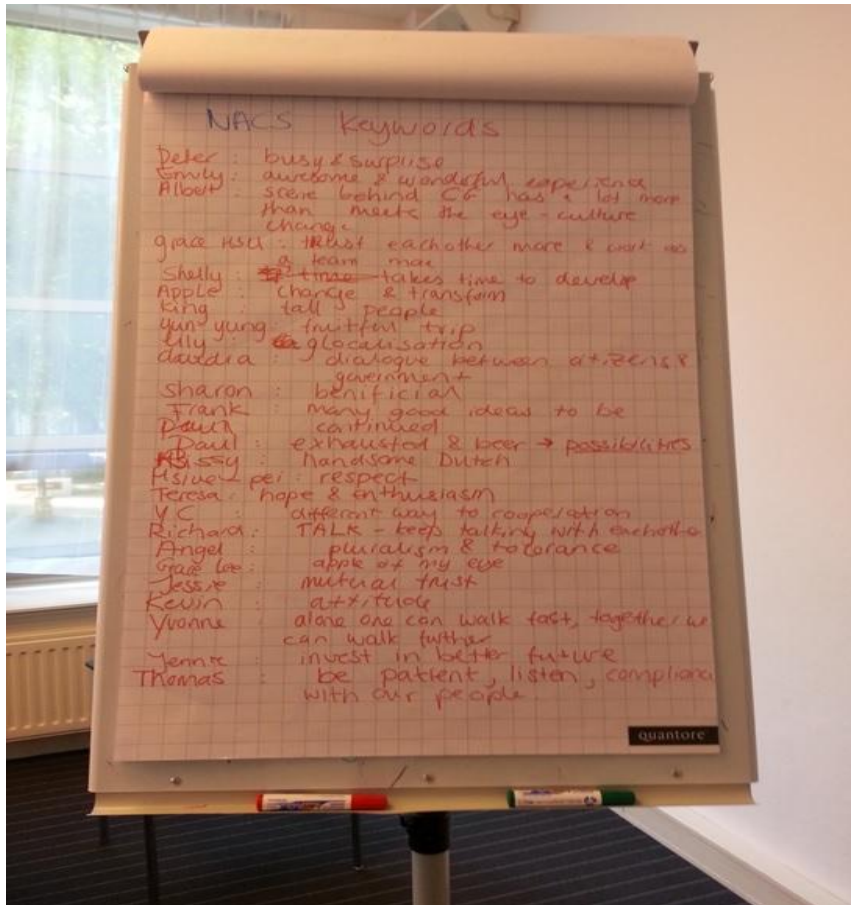 NACS Keywords
Peter : busy & surprise
Emily : awesome & wonderful experience
Albert : scene behind CG has a lot more
than meets the eye - culture
change
grace HSU : trust eachother more & work as
a team
Shelly : time takes time to develop
Apple : change & transform
King : tall people
yun yung : fruitful trip
Lily : glocalisation
claudia : dialogue between citizens &
government
Sharon : benificial
Frank : many good ideas to be
continued
Paul : exhausted & beer → possibilities
Sissy : handsome Dutch
Hsiue-pei : respect
Teresa : hope & enthusiasm
YC : different way to cooperation
Richard : TALK - keep talking with eachothe
Angel : pluralism & tolorance
Grace Lee : apple of my eye
Jessie : mutural trust
Kevin : attitude
Yvonne : alone one can walk fast, together we
can walk further
Jennie : invest in better future
Thomas : be patient, listen, complianc
with our people.
quantore